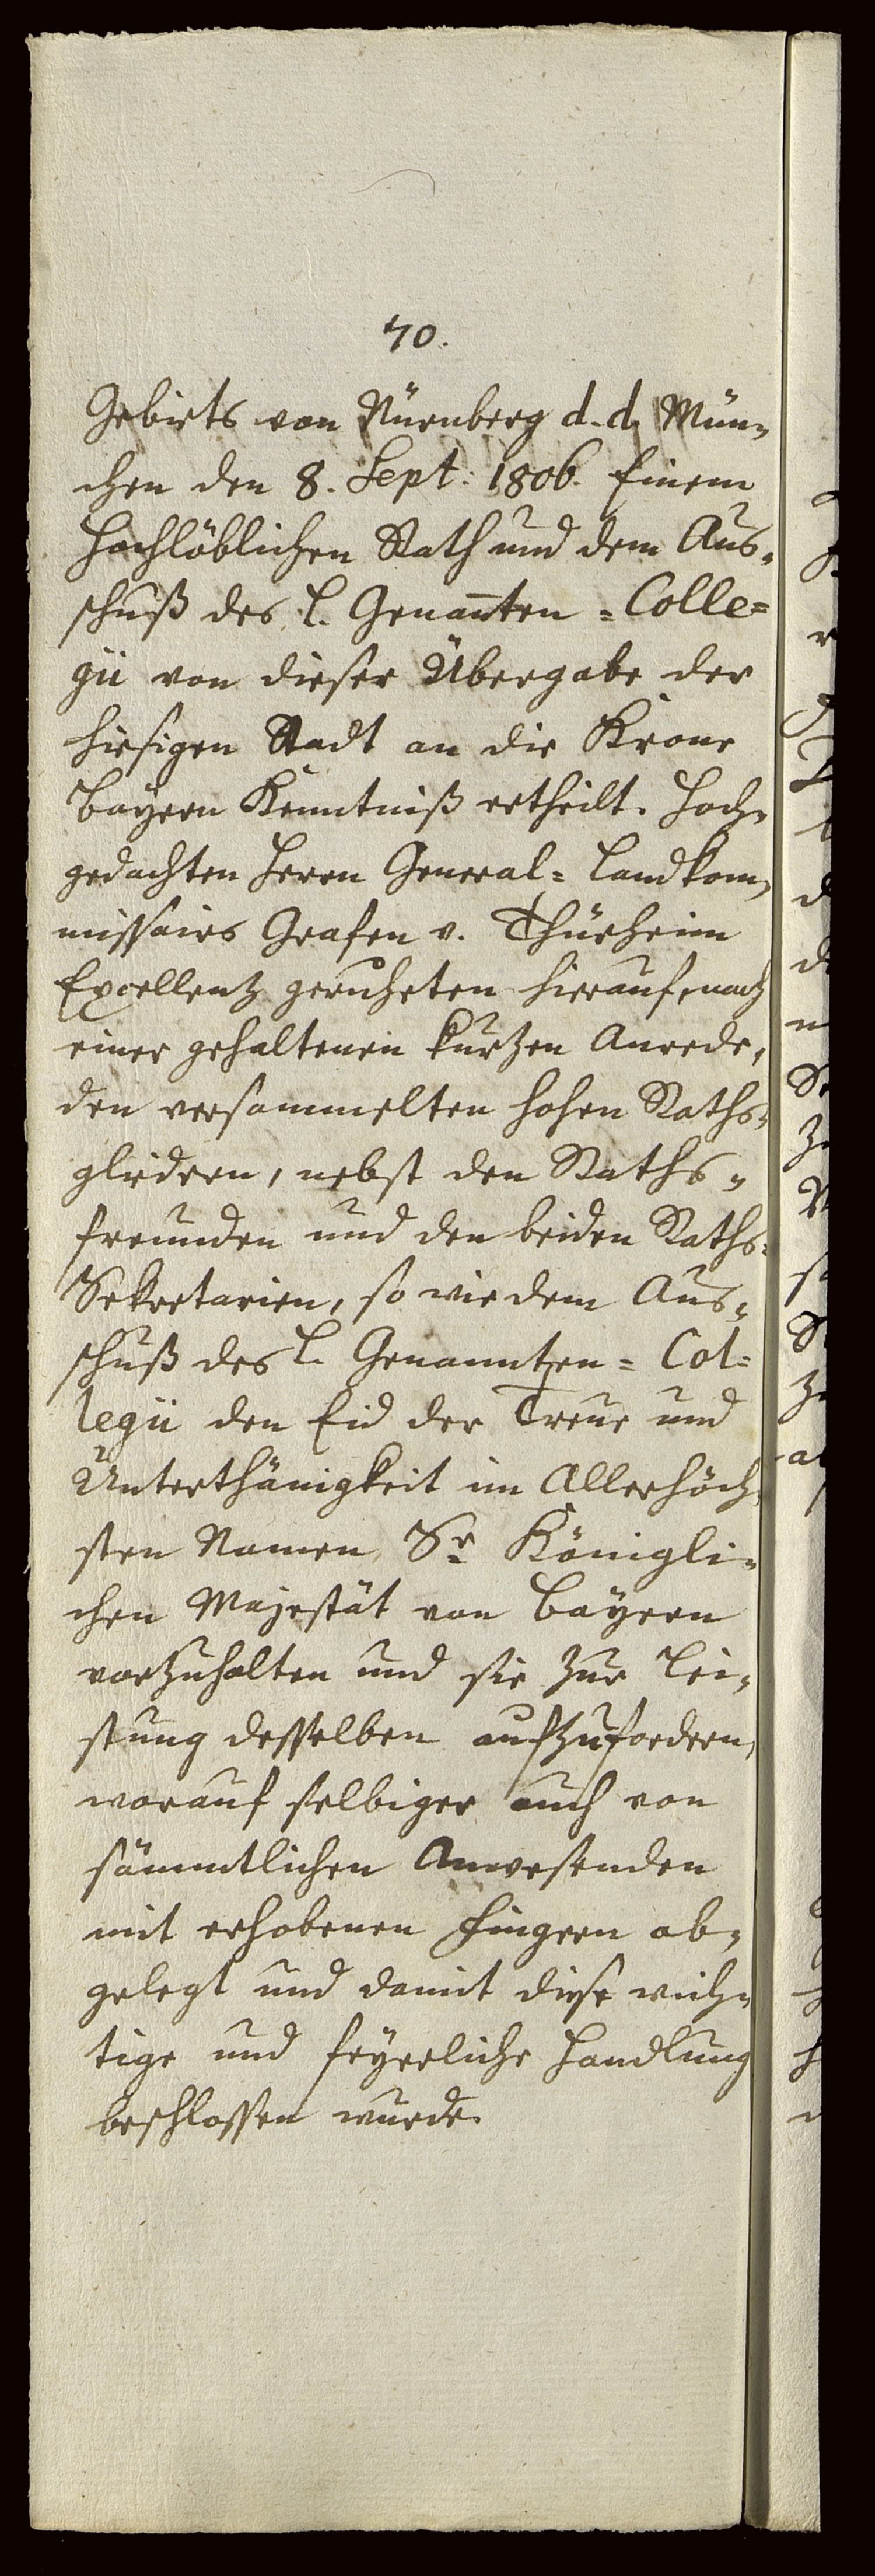 70.
Gebiets von Nürnberg d. d. Mün-
chen den 8. Sept: 1806. Einem
Hochlöblichen Rath und dem Aus-
schuß des l. Genanten-Colle-
gii von dieser Übergabe der
hiesigen Stadt an die Krone
Bayern Kenntniß ertheilt. Hoch-
gedachten Herrn General-Landkom-
missairs Grafen v. Thürheim
Excellentz geruheten hierauf, nach
einer gehaltenen kurzen Anrede,
den versammelten hohen Raths-
gliedern, nebst den Raths-
freunden und den beiden Raths-
Sekretarien, so wie dem Aus-
schuß des l. Genannten-Col-
legii den Eid der Treue und
Unterthänigkeit im Allerhöch-
sten Namen Sr Königli-
chen Majestät von Bayern
vorzuhalten und sie zur Lei-
stung desselben aufzufordern,
worauf selbiger auch von
sämmtlichen Anwesenden
mit erhobenen Fingern ab-
gelegt und damit diese wich-
tige und feyerliche Handlung
beschlossen wurde.